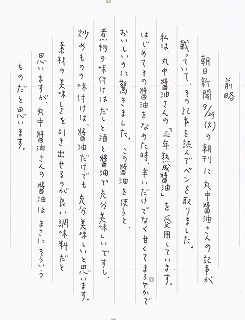 前略
朝日新聞9/29(火)の朝刊に丸中醤油さんの記事が
載っていて、その記事を読んでペンを取りました。
私は、丸中醤油さんの「三年熟成醤油」を愛用しています。
はじめてその醤油をなめた時、辛いだけでなく甘くてまろやかで
おいしいのに驚きました。この醤油を使うと、
煮物の味付けはだしと酒と醤油で充分美味しいですし、
炒めものの味付けは、醤油だけでも充分美味しいと思います。
素材の美味しさを引き出せるのが良い調味料だと
思いますが、丸中醤油さんの醤油はまさにそういう
ものだと思います。